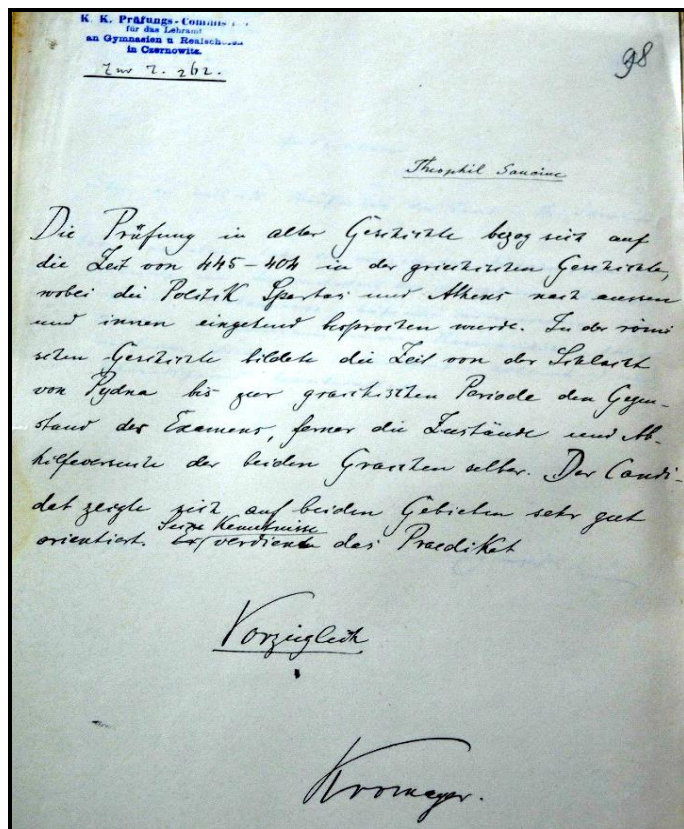 K. K. Prüfungs-Commis
für das Lehramt
an Gymnasien u Realschulen
in Czernowitz.
Zur Z. 262.
98
Theophil Sauciuc
Die Prüfung in alter Geschichte bezog sich auf
die Zeit von 445-404 in der griechischen Geschichte,
wobei die Politik Spartas und Athens nach aussen
und innen eingehend besprochen wurde. In der römi
schen Geschichte bildete die Zeit von der Schlacht
von Pydna bis zur gracchischen Periode den Gegen-
stand des Examens, ferner die Zustände und Ab-
hilfeversuche der beiden Gracchen selber. Der Candi-
dat zeigte sich auf beiden Gebieten sehr gut
Seine Kenntnisse
orientiert. Er verdienen das Praedikat
Vorzüglich
Kromayer.